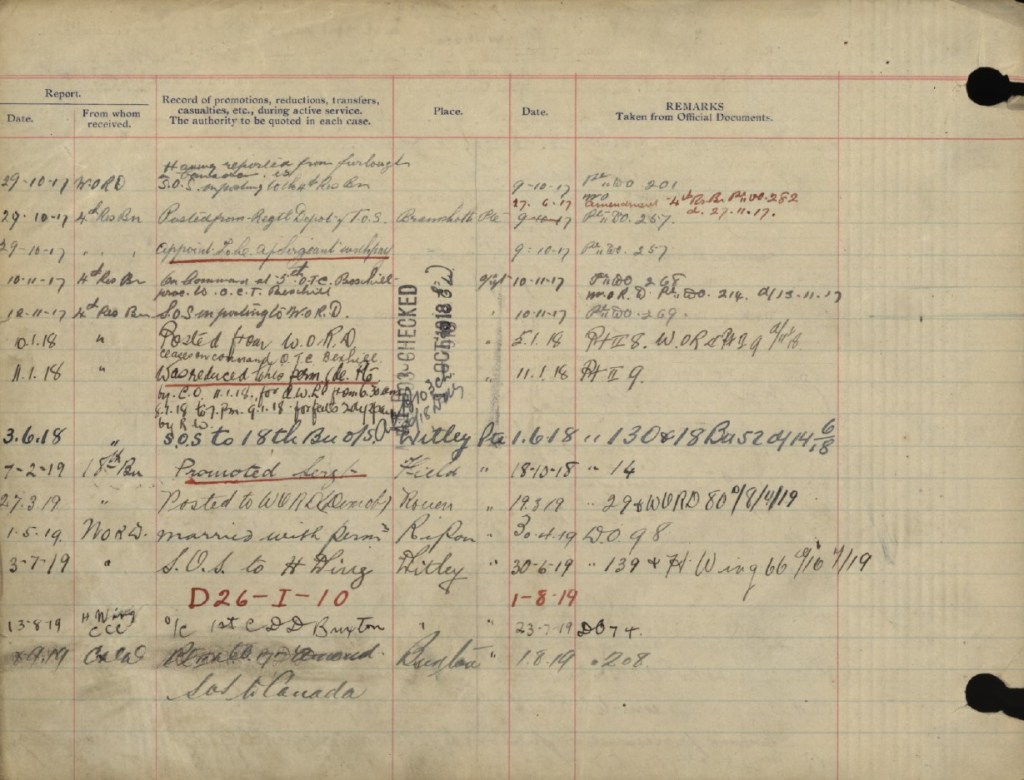 Report.
Date.
From whom received.
Record of promotions, reductions, transfers, casualties, etc., during active service. The authority to be quoted in each case.
Place.
Date.
REMARKS
Taken from Official Documents.
Having reported from furlough
29-10-17 W.O.R.D S.O.S. on posting to 4th Res Bn 9-10-17 Pt II DO 201
27.6.17 amendment 4th R.B. Pt II DO. 282
d. 27.11.17.
29-10-17 4th Res Bn Posted from Regtl Depot & T.O.S. Bramshott Pte 9-10-17 Pt II DO. 257.
29-10-17 " " Appoint. to be A/Sergeant with pay 9-10-17 Pt II DO. 257
10-11-17 4th Res Bn On Command at 5th O.T.C. Bexhill 10-11-17 Pt II DO 268
W.O.R.D. Pt II DO. 214. d/13-11-17
12-11-17 4th Res Bn SOS on posting to W.O.R.D. 10-11-17 Pt II DO. 269.
.1.18 " Posted from W.O.R.D. " 5.1.18 Pt II 8. W.O.R.D Pt II 9
ceases on command O.T.C. Bexhill.
11.1.18 " Was reduced to Pte " 11.1.18 Pt II 9.
by C.O. 11.1.18. for A.W.L. from 6.30 am
.1.18 to 7 P.m. 9.1.18. forfeits 2 days pay
by R.W.
CHECKED
OCT 1918
3.6.18 " S.O.S to 18th Bn o/s Witley Pte 1.6.18 " 130 & 18 Bn 52 d/14 6/18
7-2-19 18th Bn Promoted Sergt Field " 18-10-18 " 14
27.3.19 " Posted to W.O.R.D. Rouen " 19.3.19 " 29 & WORD 80 d/8/4/19
1-5-19. W.O.R.D. married with permn Ripon " 30.4.19 DO 98
3-7-19 " S.O.S. to H Wing Witley " 30-6-19 " 139 & H. Wing 66
D26-I-10 1-8-19
13-8-19 H Wing CCC o/c 1st C D D Buxton " " 23-7-19 DO 74.
9.19 Buxton " 1.8.19 " 208.
SOS to Canada